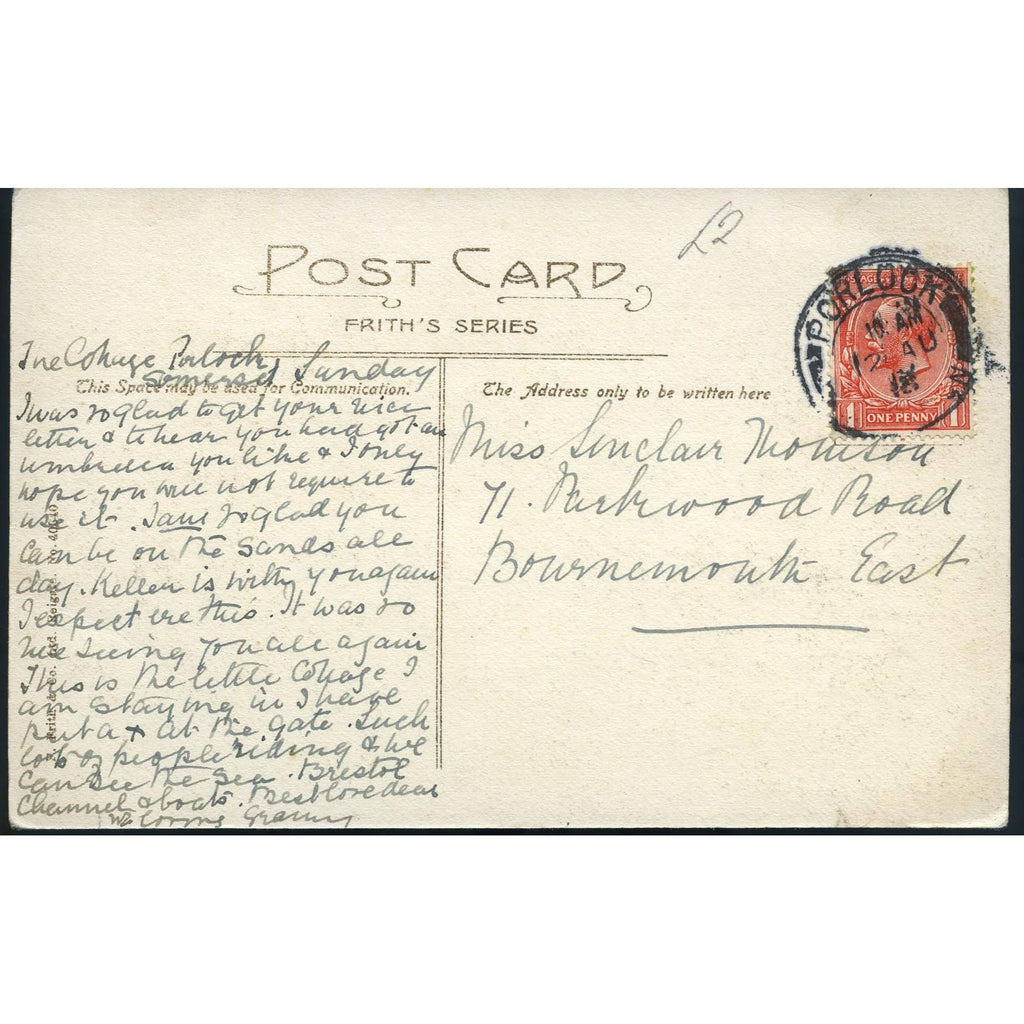 £2
POST CARD
FRITH'S SERIES
The Cottage Porlock
Somerset Sunday
This Space may be used for Communication.
The Address only to be written here
I was so glad to get your nice
letter & to hear you had got an
umbrella you like & I only
hope you will not require to
use it. I am so glad you
can be on the sands all
day. is with you again
I expect ere this. It was so
nice seeing you all again
This is the little Cottage I
am staying in I have
put a x at the gate. Such
lots of people riding & we
can see the sea. Bristol
Channel & boats. Best love dear
loving Granny
Miss Sinclair
71. Parkwood Road
Bournemouth East
PORLOCK
10 AM
12 AU
18
POSTAGE
1 ONE PENNY 1
F. Frith & Co. Ltd. Reigate. No.